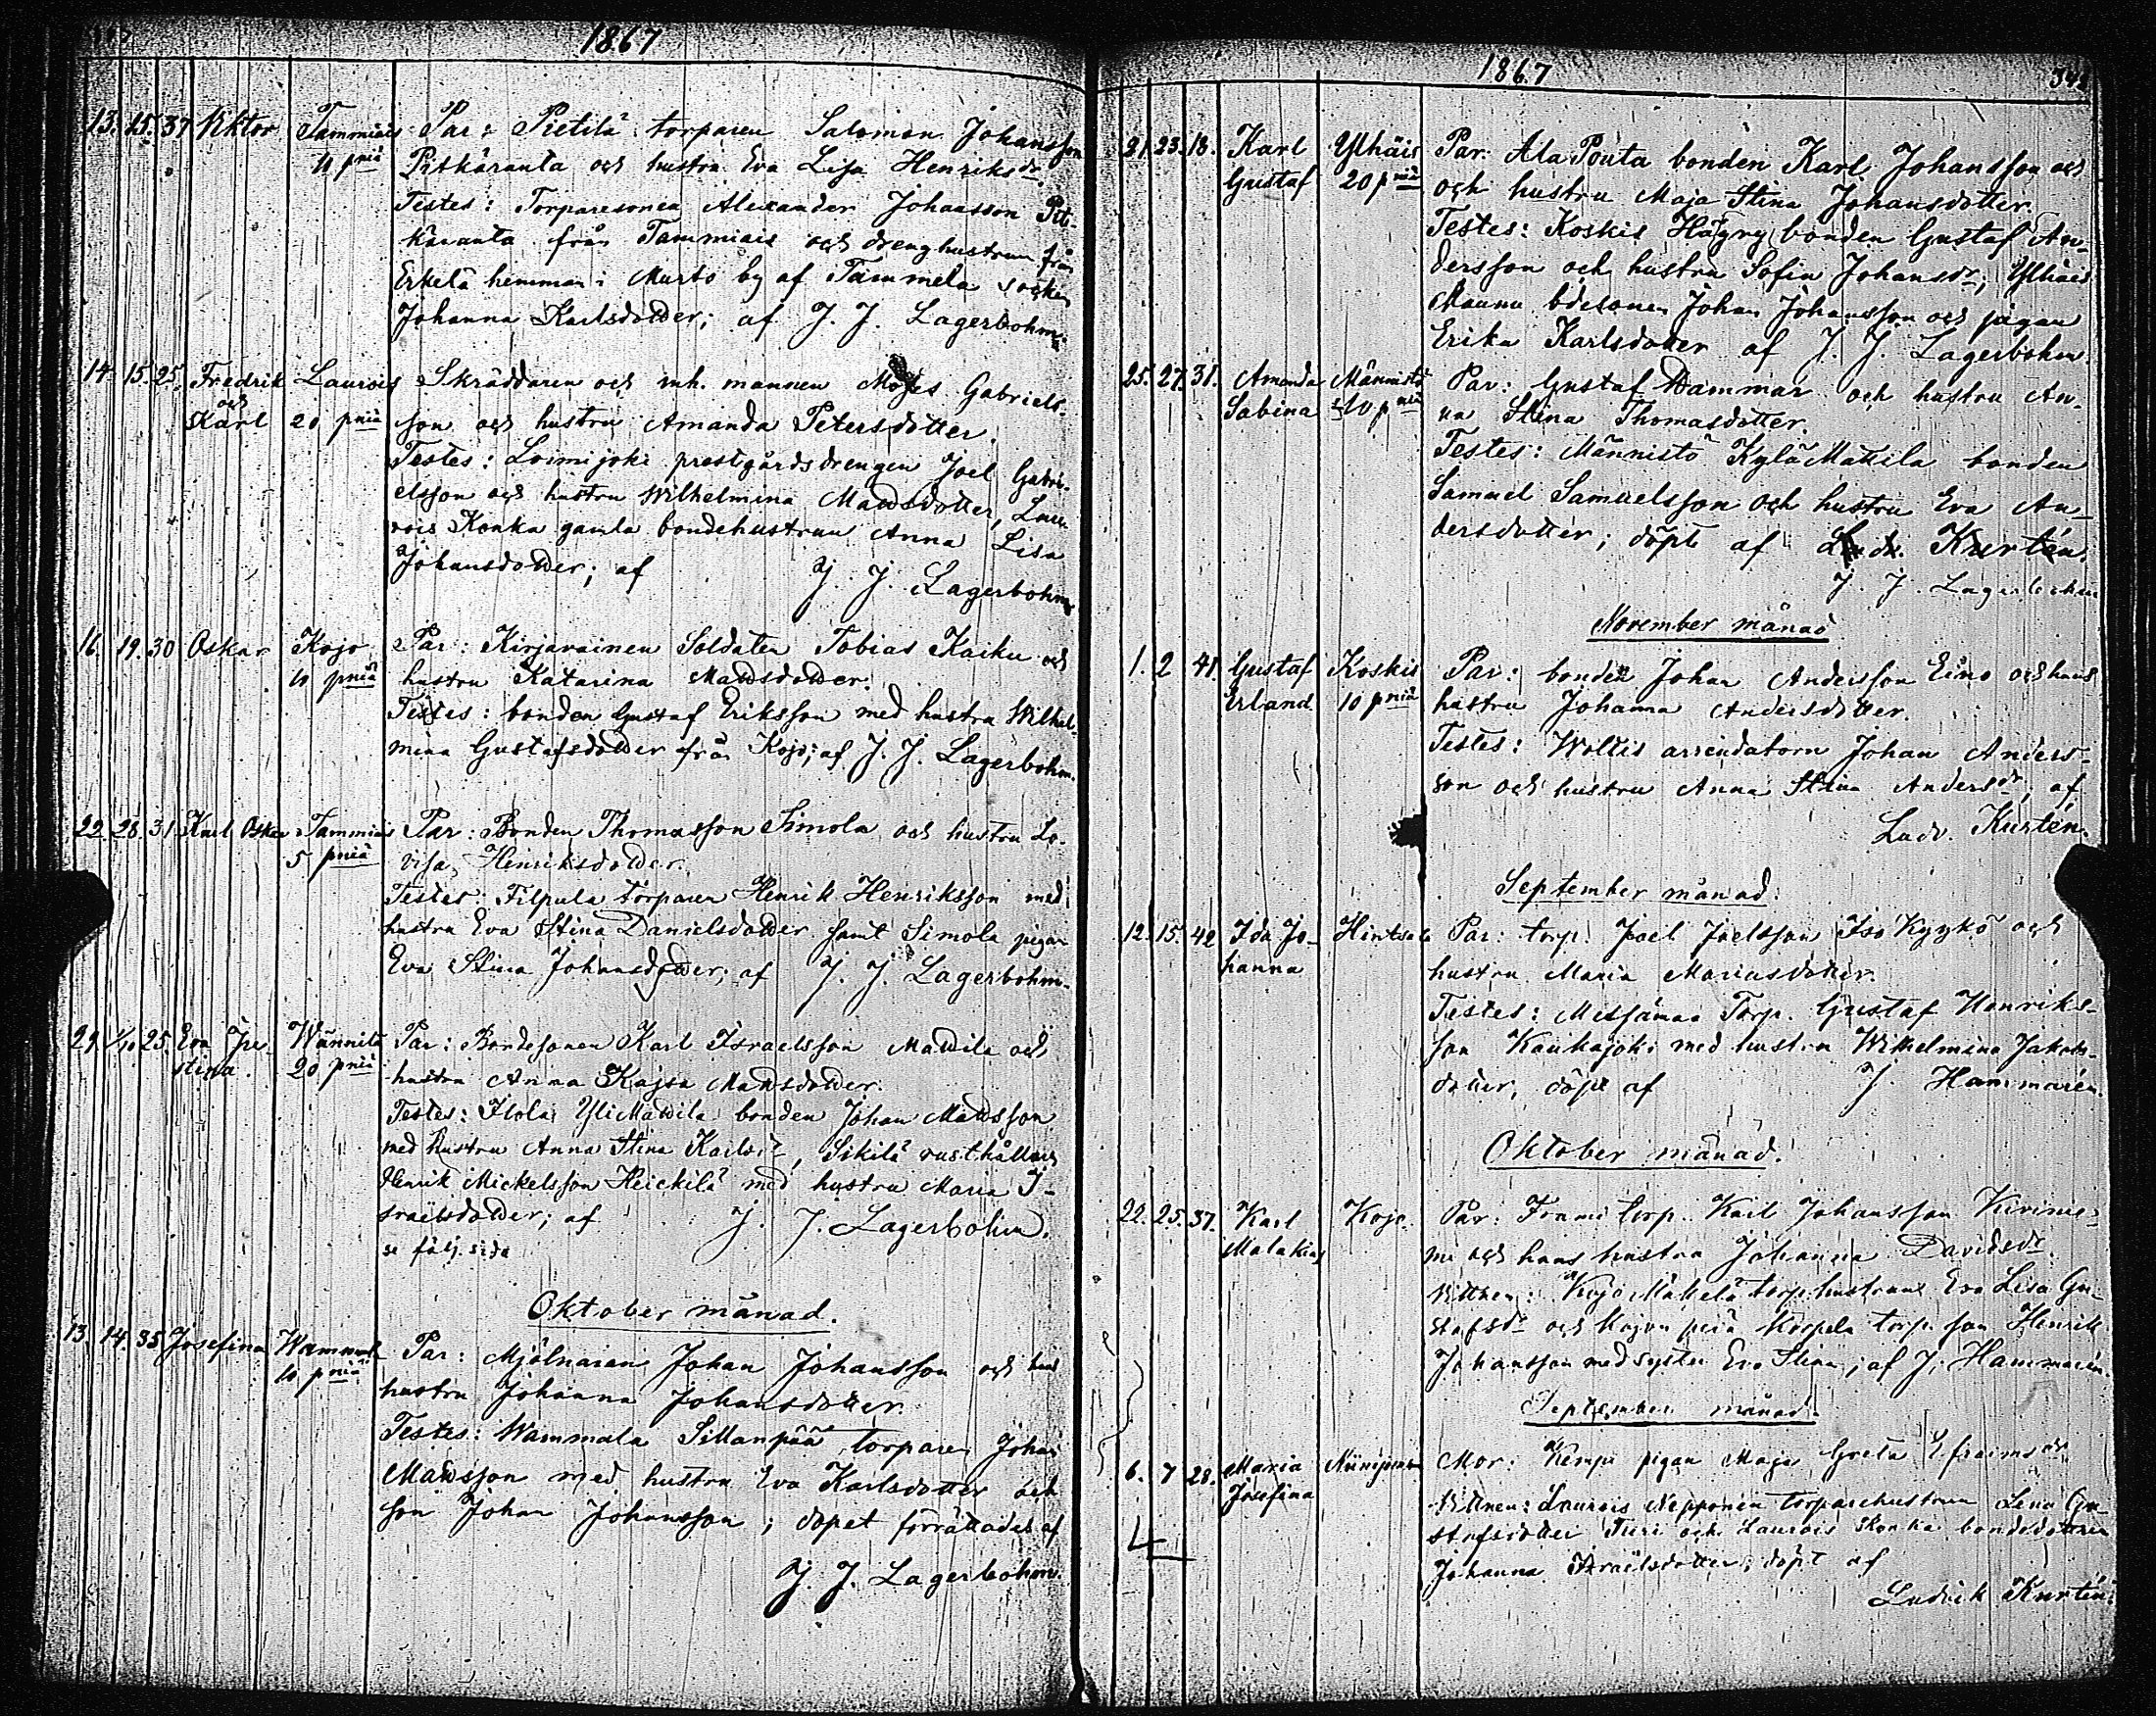 1867
13. 15. 37 Viktor Tammiais Par: Pietilä torparen Salomon Johansson
10 pniä Pitkäranta och hustru Eva Lisa Henriksdr.
Testes: Torparesonen Alexander Johansson Pit-
käranta från Tammiais och drenghustrun från
Erkelä hemman i Murto by af Tammela socken
Johanna Karlsdotter; af J. J. Lagerbohm.
14. 15. 25. Fredrik Laurois Skräddaren och inh. mannen Moses Gabriels-
och
Karl 20 pniä son och hustru Amanda Petersdotter.
Testes: Loimijoki prestgårdsdrengen Joel Gabri-
elsson och hustru Wilhelmina Mattsdotter, Lau-
rois Konka gamla bondehustrun Anna Lisa
Johansdotter; af J. J. Lagerbohm
16. 19. 30 Oskar Kojo Par: Kirjavainen Soldaten Tobias Kaiku och
10 pniä hustru Katarina Mattsdotter.
Testes: bonden Gustaf Eriksson med hustru Wilhel-
mina Gustafsdotter från Kojo; af J. J. Lagerbohm.
22. 28. 31 Karl Oskar Tammiais Par: Bonden Thomasson Simola och hustru Lo-
5 pniä visa Henriksdotter.
Testes: Filpula torparen Henrik Henriksson med
hustru Eva Stina Danielsdotter samt Simola pigan
Eva Stina Johansdotter; af J. J. Lagerbohm.
29. 1/10 25. Eva Ju- Wännilä Par: Bondesonen Karl Israelsson Mattila och
stina. 20 pniä hustru Anna Kajsa Mattsdotter.
Testes: Ilola YliMattila bonden Johan Mattsson
med hustru Anna Stina Karlsdr, Sikilä rusthållaren
Henrik Mickelsson Heickilä med hustru Maria I-
sraelsdotter; af J. J. Lagerbohm.
se följ. sida
Oktober månad.
13. 14. 35 Josefina Wammala Par: Mjölnaren Johan Johansson och hans
10 pniä hustru Johanna Johansdotter
Testes: Wammala Sillanpää torparen Johan
Mattsson med hustru Eva Karlsdotter och
son Johan Johansson; dopet förrättades af
J. J. Lagerbohm.
1867
21. 23. 18. Karl Ylhäis Par: AlaPouta bonden Karl Johansson och
Gustaf 20 pniä och hustru Maja Stina Johansdotter.
Testes: Koskis Högry bonden Gustaf An-
dersson och hustru Sofia Johansdr, Ylhäis
Maunu bdesonen Johan Johansson och pigan
Erika Karlsdotter af J. J. Lagerbohm.
25. 27. 31. Amanda Männistö Par: Gustaf Dammar och hustru An-
Sabina 10 pniä na Stina Thomasdotter.
Testes: Männistö KyläMattila bonden
Samuel Samuelsson och hustru Eva An-
dersdotter; döpt af Kurtén.
J. J. Lagerbohm
November månad
1. 2 41. Gustaf Koskis Par: bonden Johan Andersson Eino och hans
Erland 10 pniä hustru Johanna Andersdotter.
Testes: Woltis arrendatorn Johan Anders-
son och hustru Anna Stina Andersdr, af
Ludv. Kurtén.
September månad.
12. 15. 42 Ida Jo- Hirtsalo Par: torp. Joel Joelsson Iso Kyykö och
hanna hustru Maria Mariasdotter.
Testes: Metsämaa Torp. Gustaf Henriks-
son Kaukajoki med hustru Wilhelmina Jakobs-
dotter, döpt af J. Hammarén.
Oktober månad.
22. 25. 37. Karl Kojo Par: Frami torp. Karl Johansson Kivinie-
Malakias mi och hans hustru Johanna Davidsdr.
Vittnen: Kojo Mäkelä torp. hustrun Eva Lisa Gu-
stafsdr och Kojon periä Korpela torp. son Henrik
Johansson med syster Eva Stina; af J. Hammarén.
September månad.
6. 7 28. Maria Niinijoensuu Mor: Kempi pigan Maja Greta Efraimsdr.
Josefina Vittnen: Laurois Nepponen torparehustrun Lena Gu-
stafsdotter Turi och Laurois Konka bondedottren
Johanna Israelsdotter; döpt af
Ludvik Kurtén.